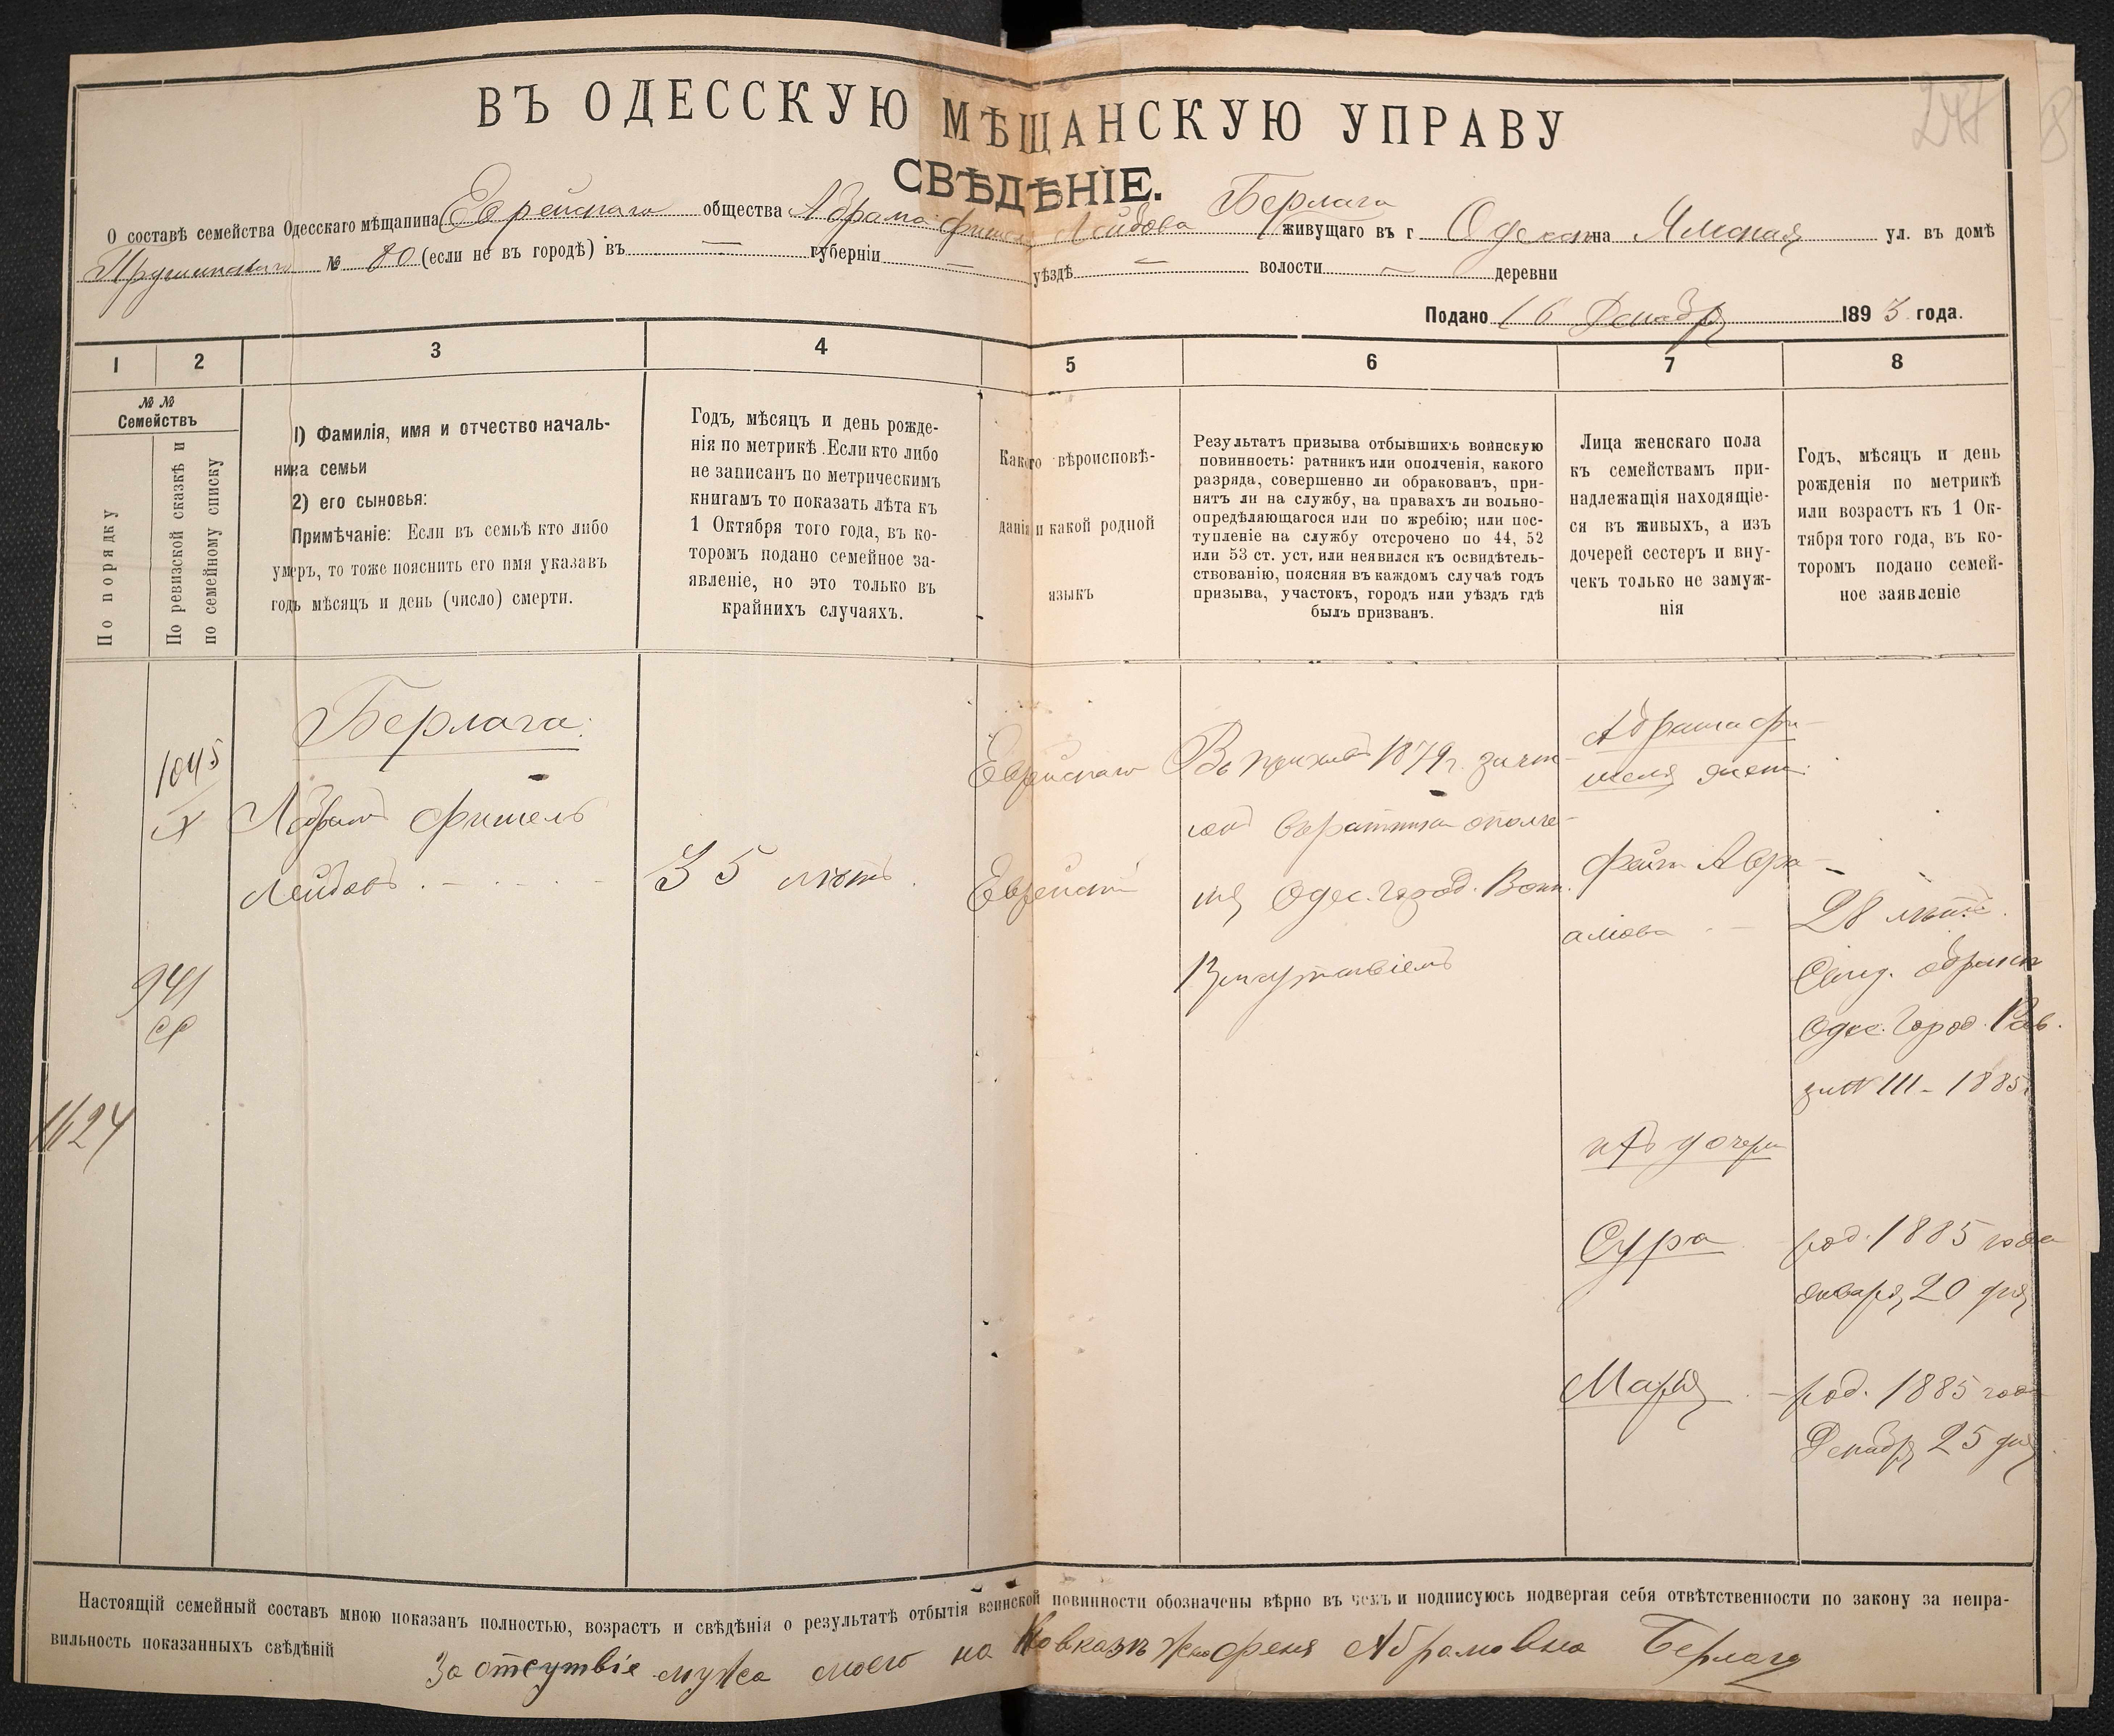 ВЪ ОДЕССКУЮ МѢЩАНСКУЮ УПРАВУ
СВѢДѢНІЕ.
О составѣ семейства Одесскаго мѣщанина Еврейскаго общества Абрама Фишеля Лейбова Берлага живущаго въ г Одесса на Ямская ул. въ домѣ
№ 80 (если не въ городѣ) въ — губерніи — уѣздѣ — волости — деревни
Подано 16 Декабря 1893 года.
1 2 3 4 5 6 7 8
№ №
Семействъ
По порядку
По ревизской сказкѣ и
по семейному списку
1) Фамилія, имя и отчество началь-
ника семьи
2) его сыновья:
Примѣчаніе: Если въ семьѣ кто либо
умеръ, то тоже пояснить его имя указавъ
годъ мѣсяцъ и день (число) смерти.
Годъ, мѣсяцъ и день рожде-
нія по метрикѣ. Если кто либо
не записанъ по метрическимъ
книгамъ то показать лѣта къ
1 Октября того года, въ ко-
торомъ подано семейное за-
явленіе, но это только въ
крайнихъ случаяхъ.
Какого вѣроисповѣ-
данія и какой родной
языкъ
Результатъ призыва отбывшихъ воинскую
повинность: ратникъ или ополченія, какого
разряда, совершенно ли обракованъ, при-
нятъ ли на службу, на правахъ ли вольно-
опредѣляющагося или по жребію; или пос-
тупленіе на службу отсрочено по 44, 52
или 53 ст. уст. или неявился къ освидѣтель-
ствованію, поясняя въ каждомъ случаѣ годъ
призыва, участокъ, городъ или уѣздъ гдѣ
былъ призванъ.
Лица женскаго пола
къ семействамъ при-
надлежащія находящіе-
ся въ живыхъ, а изъ
дочерей сестеръ и вну-
чекъ только не замуж-
нія
Годъ, мѣсяцъ и день
рожденія по метрикѣ
или возрастъ къ 1 Ок-
тября того года, въ ко-
торомъ подано семей-
ное заявленіе
1045
X
941
1624
Берлага
Абрамъ Фишель
Лейбовъ
35 лѣтъ
Еврейскаго
Еврейскій
Въ призывѣ 1879 г. зачис-
ленъ въ ратники ополче-
нія Одес. Город. Воин.
Присутствіемъ
Абрама Фи-
шеля жена
Фейга Абра-
мова
28 лѣтъ
Одес. Город. Рав.
за № III - 1885
ихъ дочери
Сура род. 1885 года
Января 20 дня
Марья род. 1885 года
Декабря 25 дня
Настоящій семейный составъ мною показанъ полностью, возрастъ и свѣдѣнія о результатѣ отбытія воинской повинности обозначены вѣрно въ чемъ и подписуюсь подвергая себя отвѣтственности по закону за непра-
вильность показанныхъ свѣдѣній
За отсутвіе мужа моего на Кавказѣ жена Феня Абрамовна Берлага